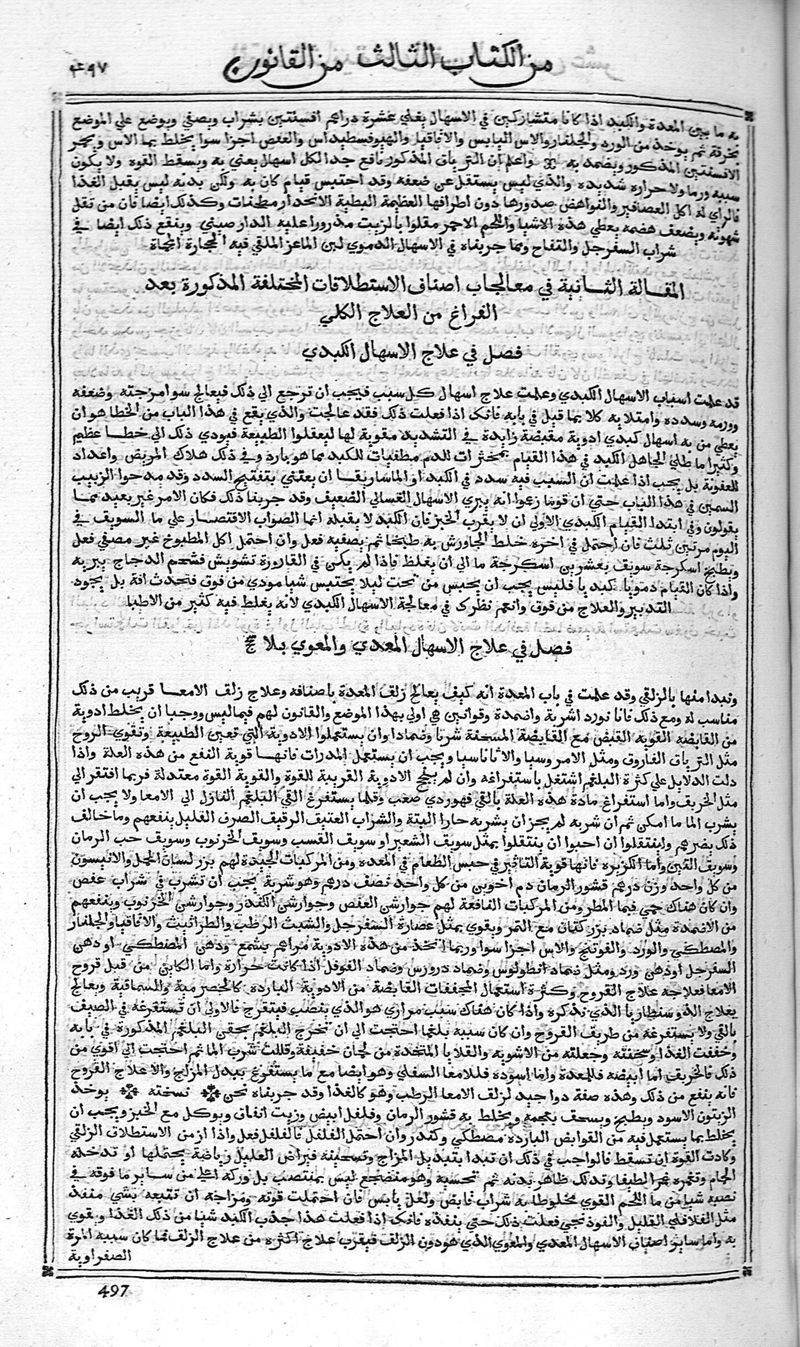 من الكتاب الثالث من القانون
٤٩٧
به ما بين المعدة والكبد اذا كانا متشاركين في الاسهال يغلي عشرة دراهم افسنتين بشراب ويصفي ويوضع علي الموضع
بخرقة ثم يوخذ من الورد والجلنار والاس اليابس والاقاقيا والهيوفسطيداس والعفص اجزا سوا يخلط بما الاس وبحجر
الافسنتين المذكور ويضمد به واعلم ان الترياق المذكور نافع جدا لكل اسهال يعني به ويسقط القوة ولا يكون
سببه ورما ولا حرارة شديدة والذي ليس يستقل عن ضعفه وقد احتبس قيام كان به ولكن بدنه ليس يقبل الغذا
فالراي له اكل العصافير والنواهض صدورها دون اطرافها العظيمة البطية الانحدار مطجنات وكذلك ايضا فان من تقل
شهوته ويضعف هضمه يعطي هذه الاشيا واللحم الاحمر مقلوا بالزيت مذرورا عليه الدارصيني وينفع ذلك ايضا في
شراب السفرجل والتفاح ومما جربناه في الاسهال الدموي لبن الماعز الملقي فيه الحجارة المحماة
المقالة الثانية في معالجاب اصناف الاستطلاقات المختلفة المذكورة بعد
الفراغ من العلاج الكلي
فصل في علاج الاسهال الكبدي
قد علمت اسباب الاسهال الكبدي وعلمت علاج اسهال كل سبب فيجب ان ترجع الي ذلك فيعالج سوا مزجته وضعفه
وورمه وسدده وامتلا به كلا بما قيل في بابه فانك اذا فعلت ذلك فقد عالجت والذي يقع في هذا الباب من الخطا هو ان
يعطي من به اسهال كبدي ادوية مقبضة زايدة في التشديد مقوية لها ليعقلوا الطبيعة فيودي ذلك الي خطا عظيم
وكثيرا ما طلي الجاهل الكبد في هذا القيام بمخثرات الدم مطفيات للكبد مما هو بارد وفي ذلك هلاك المريض واعداد
للعفونة بل يجب اذا علمت ان السبب فيه سدد في الكبد او الماساريقا ان يعتني بتفتيح السدد وقد مدحوا الزبيب
السمين في هذا الباب حتي ان قوما زعموا انه يبري الاسهال الغسالي الضعيف وقد جربنا ذلك فكان الامر غير بعيد مما
يقولون وفي ابتدا القيام الكبدي الاولي ان لا يقرب الخبز فان الكبد لا يقبله انما الصواب الاقتصار علي ما السويق في
اليوم مرتين ثلث فان احتمل في اخره خلط الجاورش به طبخا ثم يصفيه فعل وان احتمل اكل المطبوخ غير مصفي فعل
ويطبخ اسكرجة سويق بعشرين اسكرجة ما الي ان يغلظ فاذا لم يكن في القارورة تشويش فشحم الدجاج يبريه
واذا كان القيام دمويا كبديا فليس يجب ان يحبس من تحت ليلا يحتبس شيا مودي من فوق فتحدث افة بل يجود
التدبير والعلاج من فوق وانعم نظرك في معالجة الاسهال الكبدي لانه يغلط فيه كثير من الاطبا
فصل في علاج الاسهال المعدي والمعوي بلا
ونبدا منها بالزلقي وقد علمت في باب المعدة انه كيف يعالج زلق المعدة باصنافه وعلاج زلق الامعا قريب من ذلك
مناسب له ومع ذلك فانا نورد اشربة واضمدة وقوانين هي اولي بهذا الموضع والقانون لهم فيما ليس ووجبا ان يخلط ادوية
من القابضه القوية القبض مع القابضة المسخنة شربا وضمادا وان يستعملوا الادوية التي تعين الطبيعة وتقوي الروح
مثل الترياق الفاروق ومثل الامروسيا والاثاناسيا ويجب ان يستعمل المدرات فانها قوية النفع من هذه العلة واذا
دلت الدلايل علي كثرة البلغم اشتغل باستفراغه وان لم ينجح الادوية القريبة للقوة والقوية القوة معتدلة فربما افتقر الي
مثل الخربف واما استفراغ مادة هذه العلة بالقي فهو ردي صعب وقلما يستفرغ القي البلغم النازل الي الامعا ولا يجب ان
يشرب الما ما امكن ثم ان شربه لم يجز ان يشربه حارا البتة والشراب العتيق الرقيق الصرف القليل ينفعهم وما خالف
ذلك يضرهم ولينتقلوا ان احبوا ان ينتقلوا بمثل سويق الشعير او سويق القسب وسويق الخرنوب وسويق حب الرمان
وسويق التين واما الكزبره فانها قوية التاثير في حبس الطعام في المعده ومن المركبات الجيدة لهم بزر لسان الحمل والانيسون
من كل واحد وزن درهم قشور الرمان دم اخوين من كل واحد نصف درهم وهو شربة يجب ان تشرب في شراب عفص
وان كان هناك حمي فبما المطر ومن المركبات النافعة لهم جوارشن العفص وجوارشن الكندر وجوارشن الخرنوب وينفعهم
من الاضمدة مثل ضماد بزر كتان مع التمر ويقوي بمثل عصارة السفرجل والشبث الرطب والطراثيث والاقاقيا والجلنار
والمصطكي والورد والفوتنج والاس اجزا سوا وربما اتخذ من هذه الادوية مراهم بشمع ودهن المصطكي او دهن
السفرجل او دهن ورد ومثل ضماد انطولوس وضماد دورس وضماد الفوفل اذا كانت حرارة واما الكاين من قبل قروح
الامعا فعلاجه علاج القروح وكثرة استعمال المجففات القابضة من الادوية الباردة كالحصرمية والسماقية ويعالج
بعلاج الذوسنطاريا الذي نذكره واذا كان هناك سبب مراري هو الذي ينصب فيتقرح فالاولي ان تستفرغه في الصيف
بالقي ولا يستفرغه من طريف القروح وان كان سببه بلغما احتجت الي ان تخرج البلغم بحقن البلغم المذكورة في بابه
وخففت الغذا وسخنته وجعلته من الاشوية والقلايا المتخذة من لحمان خفيفة وقللت شرب الما ثم احتجت الي اقوي من
ذلك فالخربف اما ابيضه فللمعدة واما اسوده فللامعا السفلي وهو ايضا مع ما يستفرغ يبدل المزاج والاعلاج القروح
فانه ينفع من ذلك وهذه صفة دوا جيد لزلق الامعا الرطب وهو كالغذا وقد جربناه نحن نسخته يوخذ
الزيتون الاسود ويطبخ ويسحف بعجمه ويخلط به قشور الرمان وفلفل ابيض وزيت انفاق ويوكل مع الخبز ويجب ان
يخلط بما يستعمل فيه من القوابض الباردة مصطكي وكندر وان احتمل الفلفل فالفلفل فعل واذا ازمن الاستطلاق الزلقي
وكادت القوة ان تسقط فالواجب في ذلك ان تبدا بتبديل المزاج وتسخينه فيراض العليل رياضة يحتملها او تدخله
الحمام وتغمره غمرا لطيفا وتدلك ظاهر بدنه ثم تحسيه وهو مضجع ليس بمنتصب بل وركه اعلي من ساير ما فوقه في
نصبه شيا من ما اللحم القوي مخلوطا به شراب قابض ولعل يابس فان احتملت قوته ومزاجه ان تتبعه بشي منفذ
مثل الفلافلي القليل والفوذنجي فعلت ذلك حتي ينفذه فانك اذا فعلت هذا جذب الكبد شيا من ذلك الغذا ويقوي
به واما ساير اصناف الاسهال المعدي والمعوي الذي هو دون الزلق فيقرب علاج اكثره من علاج الزلق فما كان سببه المرة
الصفراوية
497